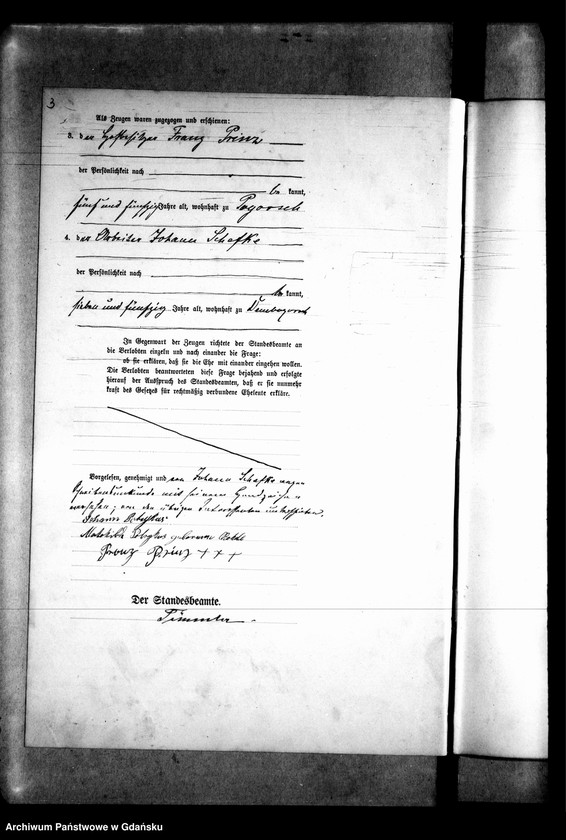 3
Als Zeugen waren zugezogen und erschienen:
3. der Hofbesitzer Franz Prinz
der Persönlichkeit nach
be kannt,
fünf und fünfzig Jahre alt, wohnhaft zu Pogorsch
4. der Arbeiter Johann Schefke
der Persönlichkeit nach
be kannt,
sieben und fünfzig Jahre alt, wohnhaft zu Dembogorsch
In Gegenwart der Zeugen richtete der Standesbeamte an
die Verlobten einzeln und nach einander die Frage:
ob sie erklären, daß sie die Ehe mit einander eingehen wollen.
Die Verlobten beantworteten diese Frage bejahend und erfolgte
hierauf der Ausspruch des Standesbeamten, daß er sie nunmehr
kraft des Gesetzes für rechtmäßig verbundene Eheleute erkläre.
Vorgelesen, genehmigt und von Johann Schefke wegen
mit seinem Handzeichen
versehen; von den übrigen unterschrieben.
Johann
geborene
Franz Prinz + + +
Der Standesbeamte.
Timmler
Archiwum Państwowe w Gdańsku